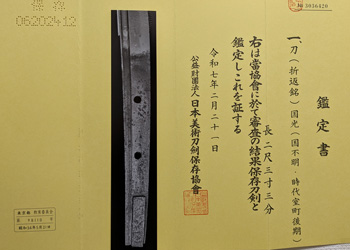 鑑定書
No 3036428
一、刀（折返銘）国光（国不明・時代室町後期）
長二尺三寸三分
右は當協會に於て審査の結果保存刀剣と
鑑定しこれを証する
令和七年二月二十一日
公益財團法人日本美術刀劍保存協會
保存
06202412